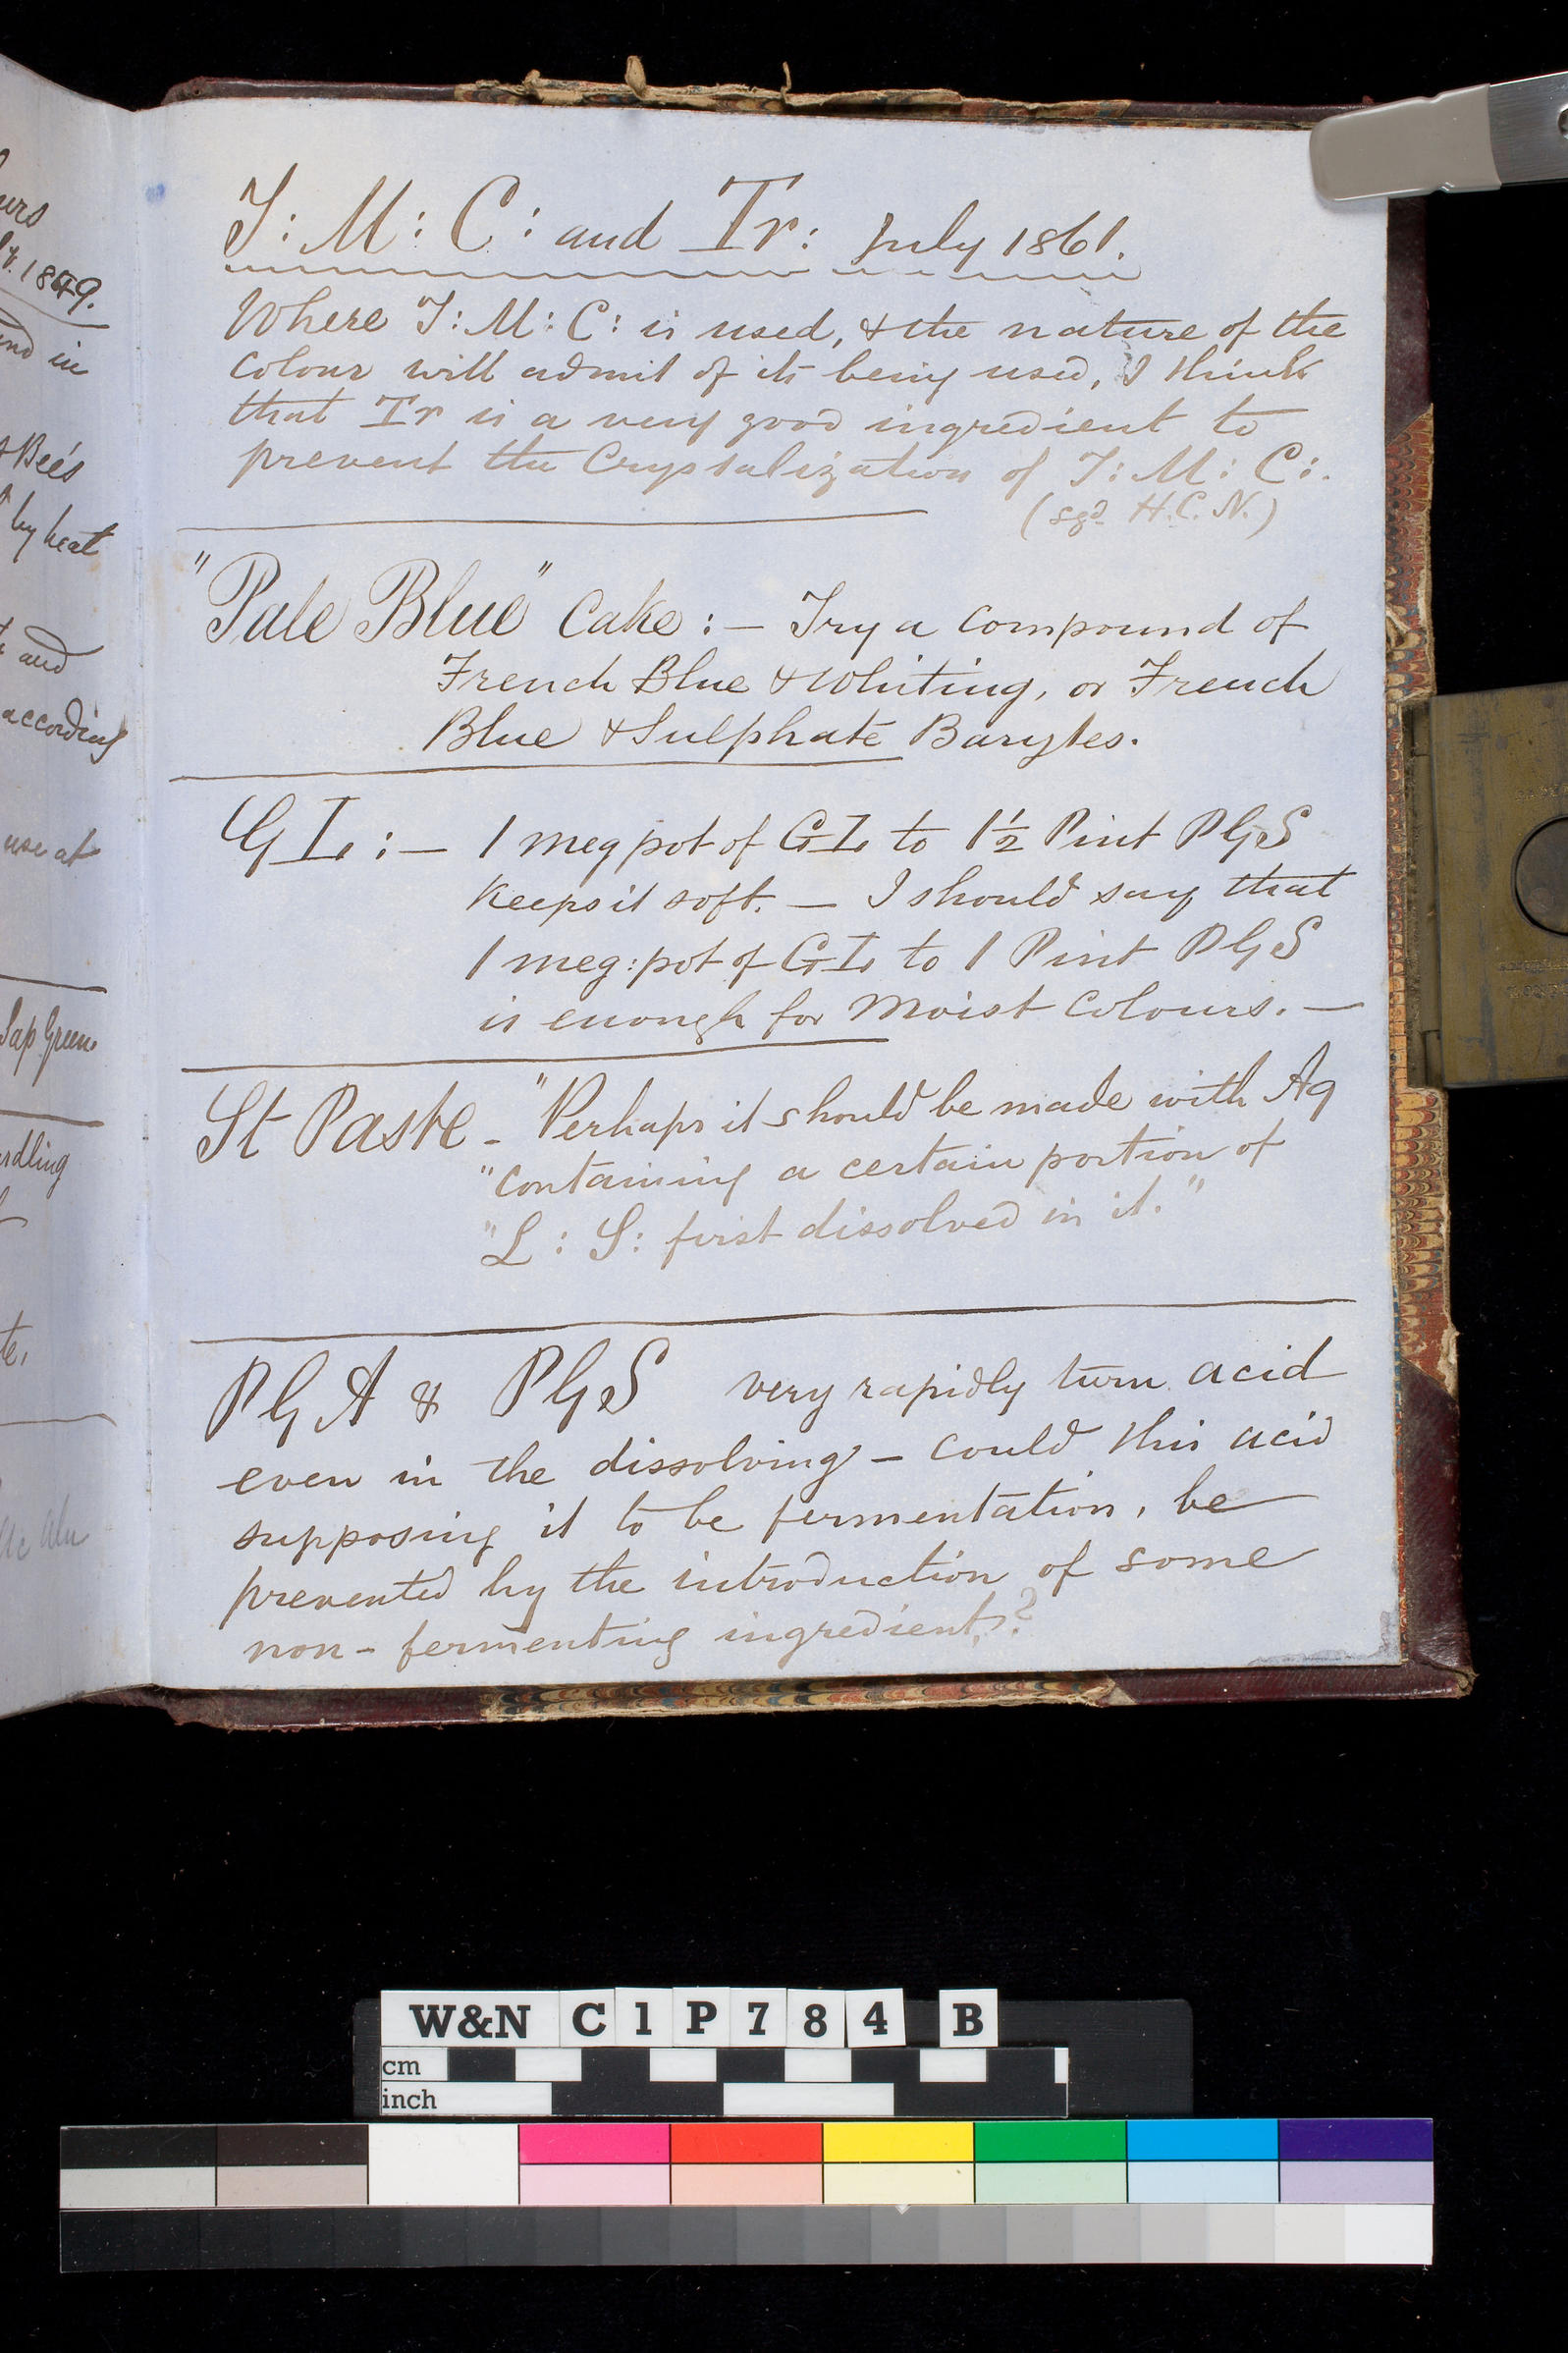 urs
1849.
and in
Bee's
by heat
and
according
use at
Sap Green.
rdling
te,
T: M: C: and Tr: July 1861.
Where T: M: C: is used, & the nature of the
colour will admit of its being used, I think
that Tr is a very good ingredient to
prevent the Crystalization of T: M: C:.
(sgd. H.C.N.)
"Pale Blue" Cake: — Try a compound of
French Blue & Whiting, or French
Blue & Sulphate Barytes.
GL: — 1 meg pot of GL to 1½ Pint PGS
keeps it soft. — I should say that
1 meg: pot of GL to 1 Pint PGS
is enough for Moist Colours. —
St Paste - "Perhaps it should be made with Aq
"containing a certain portion of
"L: S: first dissolved in it."
PGA & PGS very rapidly turn acid
even in the dissolving - could this acid
supposing it to be fermentation, be
prevented by the introduction of some
non-fermenting ingredient?
W&N C1P784 B
cm
inch